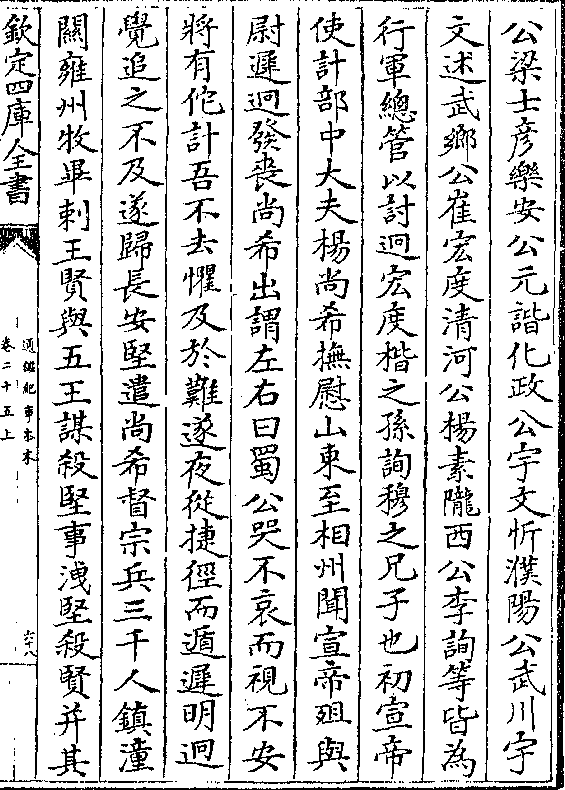 公梁士彦樂安公元諧化政公宇文忻濮陽公武川宇
文述武鄉公崔宏度清河公楊素隴西公李詢等皆為
行軍總管以討迥宏度楷之孫詢穆之兄子也初宣帝
使計部中大夫楊尚希撫慰山東至相州聞宣帝殂與
尉遲迥發喪尚希出謂左右曰蜀公哭不哀而視不安
將有佗計吾不去懼及於難遂夜從捷徑而遁遲明迥
覺追之不及遂歸長安堅遣尚希督宗兵三千人鎮潼
關雍州牧畢剌王賢與五王謀殺堅事洩堅殺賢并其
欽定四庫全書
通鑑紀事本末
卷二十五上
六十八